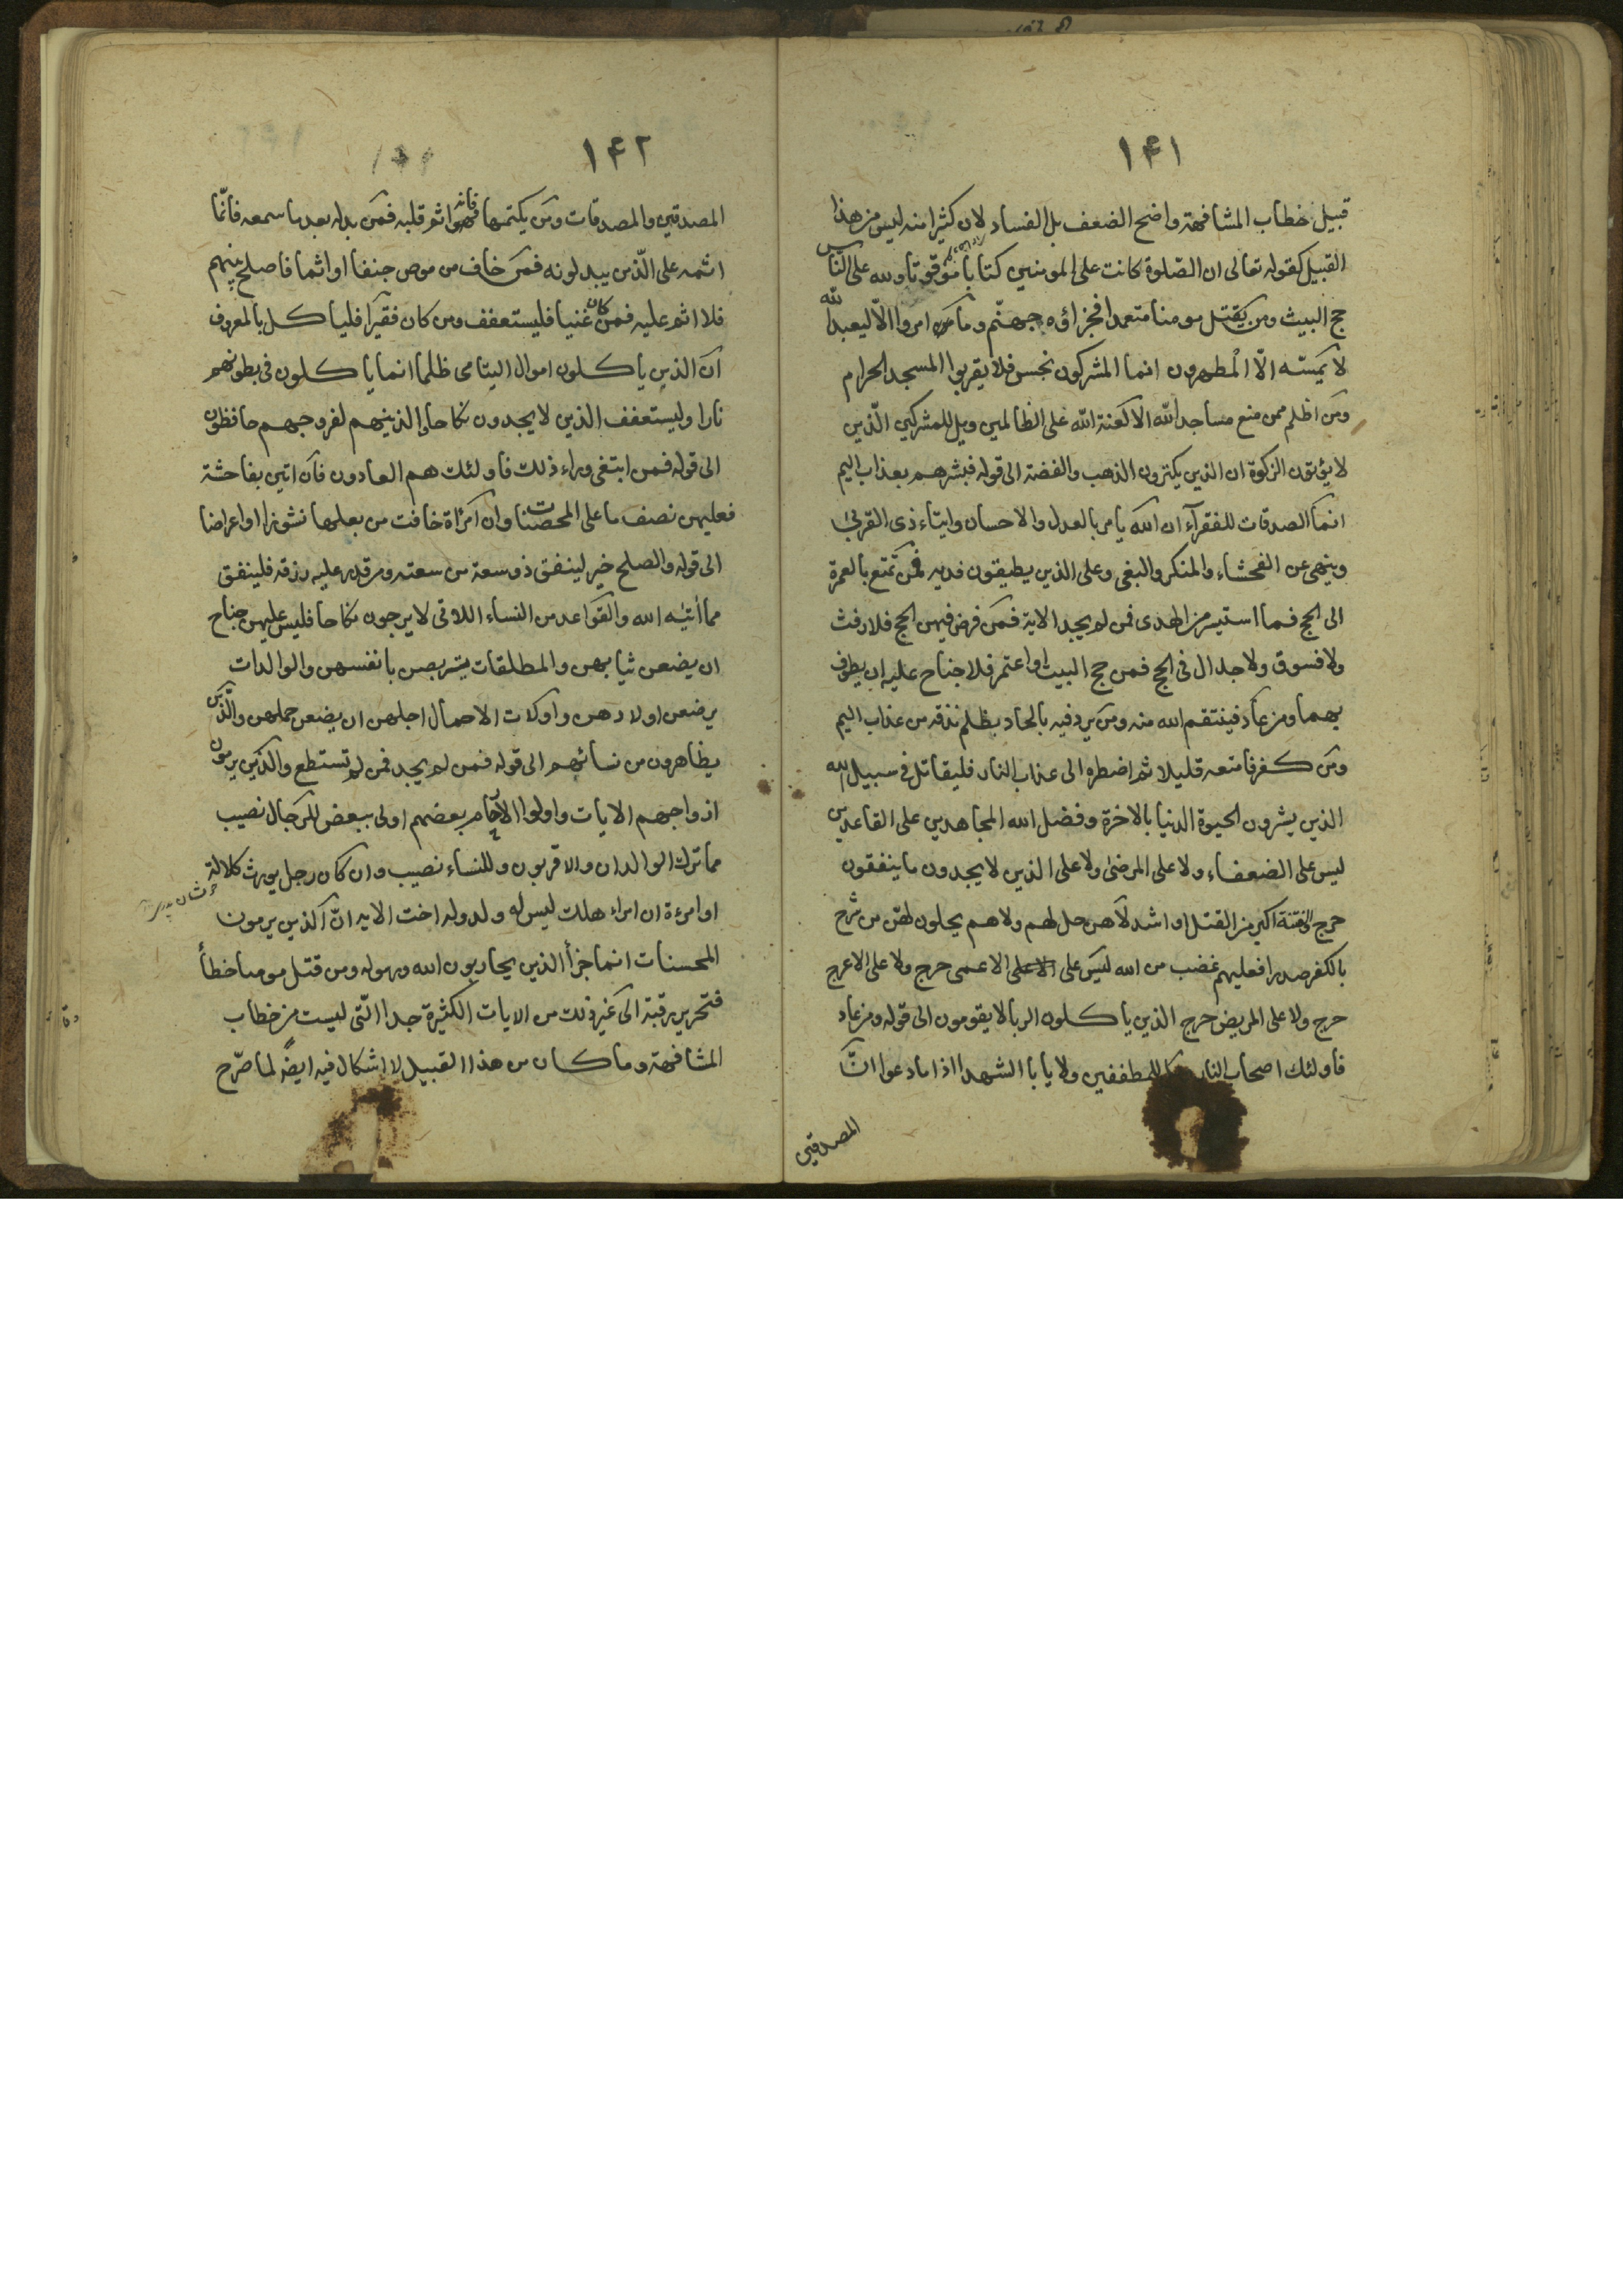 ١٤١
قبيل خطاب المشافهة واضح الضعف بل الفساد لان كثيرا منه ليس من هذا
القبيل كقوله تعالى ان الصّلوة كانت على المومنين كتابا موقوتا ولله على النّاس
حج البيت ومن يقتل مومنا متعمدا فجزاؤه جهنّم وما امروا الّا ليعبدا لله
لا يمسّه الّا المطهرون انما المشركون نجس فلا يقربوا المسجد الحرام
ومن اظلم ممن منع مساجد الله الا لعنة الله على الظالمين ويل للمشركين الّذين
لا يؤتون الزكوة ان الذين يكنزون الذهب والفضة الى قوله فبشرهم بعذاب اليم
انما الصدقات للفقرآء ان الله يامر بالعدل والاحسان وايتاء ذى القربى
وينهى عن الفحشاء والمنكر والبغى وعلى الذين يطيقون فديه فمن تمتع بالعمرة
الى الحج فما استيسر من الهدى فمن لم يجد الاية فمن فرض فيهن الحج فلا رفث
ولا فسوق ولا جدال فى الحج فمن حج البيت او اعتمر فلا جناح عليه ان يطوف
بهما ومن عاد فينتقم الله منه ومن يرد فيه بالحاد بظلم نذقه من عذاب اليم
ومن كفر فامتعه قليلا ثم اضطره الى عذاب النار فليقاتل فى سبيل الله
الذين يشرون الحيوة الدنيا بالاخرة وفضل الله المجاهدين على القاعدين
ليس على الضعفاء ولا على المرضى ولا على الذين لا يجدون ما ينفقون
حرج والفتنة اكبر من القتل او اشد لا هن حل لهم ولا هم يحلون لهنّ من شرح
بالكفر صدرا فعليهم غضب من الله ليس على الاعمى حرج ولا على الاعرج
حرج ولا على المريض حرج الذين ياكلون الربا لا يقومون الى قوله ومن عاد
فاولئك اصحاب النار للمطففين ولا يابا الشهدا اذا ما دعوا انّ
المصدقين
١٤٢
المصدقين والمصدقات ومن يكتمها فانه اثم قلبه فمن بدله بعد ما سمعه فانّما
اثمه على الّذين يبدلونه فمن خاف من موص جنفا او اثما فاصلح بينهم
فلا اثم عليه فمن كان غنيا فليستعفف ومن كان فقيرا فلياكل بالمعروف
ان الذين ياكلون اموال اليتامى ظلما انما ياكلون فى بطونهم
نارا وليستعفف الذين لا يجدون نكاحا والذينهم لفروجهم حافظون
الى قوله فمن ابتغى وراء ذلك فاولئك هم العادون فان اتين بفاحشة
فعليهن نصف ما على المحصنات وان امرأة خافت من بعلها نشوزا او اعراضا
الى قوله والصلح خير لينفق ذو سعة من سعته ومن قدر عليه رزقه فلينفق
مما اتيه الله والقواعد من النساء اللاتى لا يرجون نكاحا فليس عليهن جناح
ان يضعن ثيابهن والمطلقات يتربصن بانفسهن والوالدات
يرضعن اولادهن واولات الاحمال اجلهن ان يضعن حملهن والّذين
يظاهرون من نسائهم الى قوله فمن لم يجد فمن لم تستطع والذين يرمون
ازواجهم الايات واولوا الارحام بعضهم اولى ببعض للرجال نصيب
مما ترك الوالدان والاقربون وللنساء نصيب وان كان رجل يورث كلالة
او امرءة ان امراء هلك ليس له ولد وله اخت الايه انّ الذين يرمون
المحسنات انما جزأ الذين يحاربون الله ورسوله ومن قتل مومنا خطأ
فتحرير رقبة الى غير ذلك من الايات الكثيرة جدا الّتى ليست من خطاب
المشافهة وما كان من هذا القبيل لا اشكال فيه ايضً لما صرّح